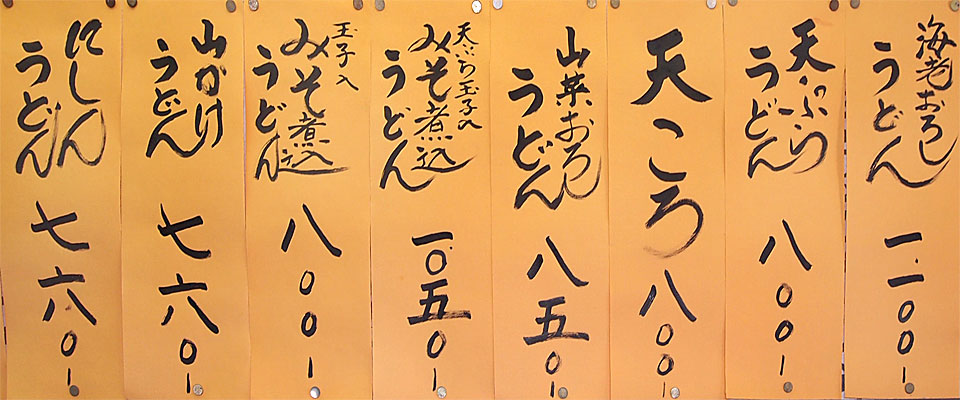 海老おろし
うどん
一、一〇〇ー
天ぷら
うどん
八〇〇ー
天ころ
八〇〇ー
山菜おろし
うどん
八五〇ー
天ぷら玉子入
みそ煮込
うどん
一、〇五〇ー
玉子入
みそ煮込
うどん
八〇〇ー
山かけ
うどん
七六〇ー
にしん
うどん
七六〇ー